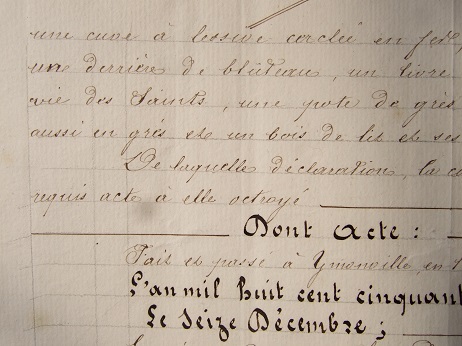 une cuve à lessive cerclée en fer,
un derrière de blûteau, un livre
vie des Saints, une pote de grès
aussi en grès et un bois de lit et ses
De laquelle déclaration, la co
requis acte à elle octroyé
Dont Acte :
Fait et passé à Ymonville, en
L'an mil huit cent cinquant
Le Seize Décembre ;